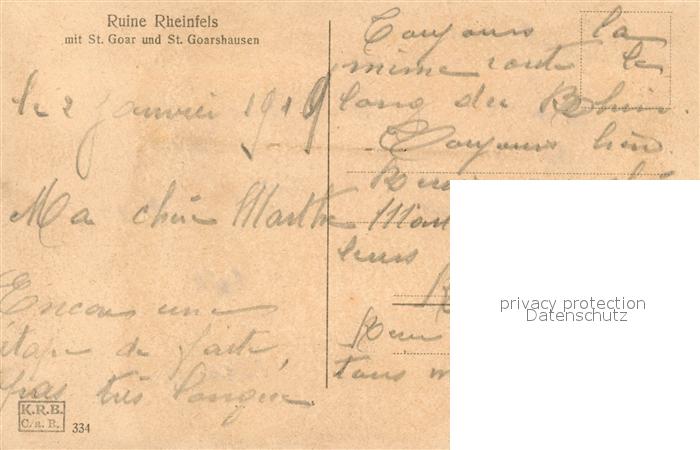 Ruine Rheinfels
mit St. Goar und St. Goarshausen
le 2 Janvier 1919
Ma chère Marthe
Encore une
étape de faite,
pas très longue.
Toujours la
même route le
long du Rhin.
Toujours bien.
leurs
tous
privacy protection
Datenschutz
K.R.B.
C/a. B.
334